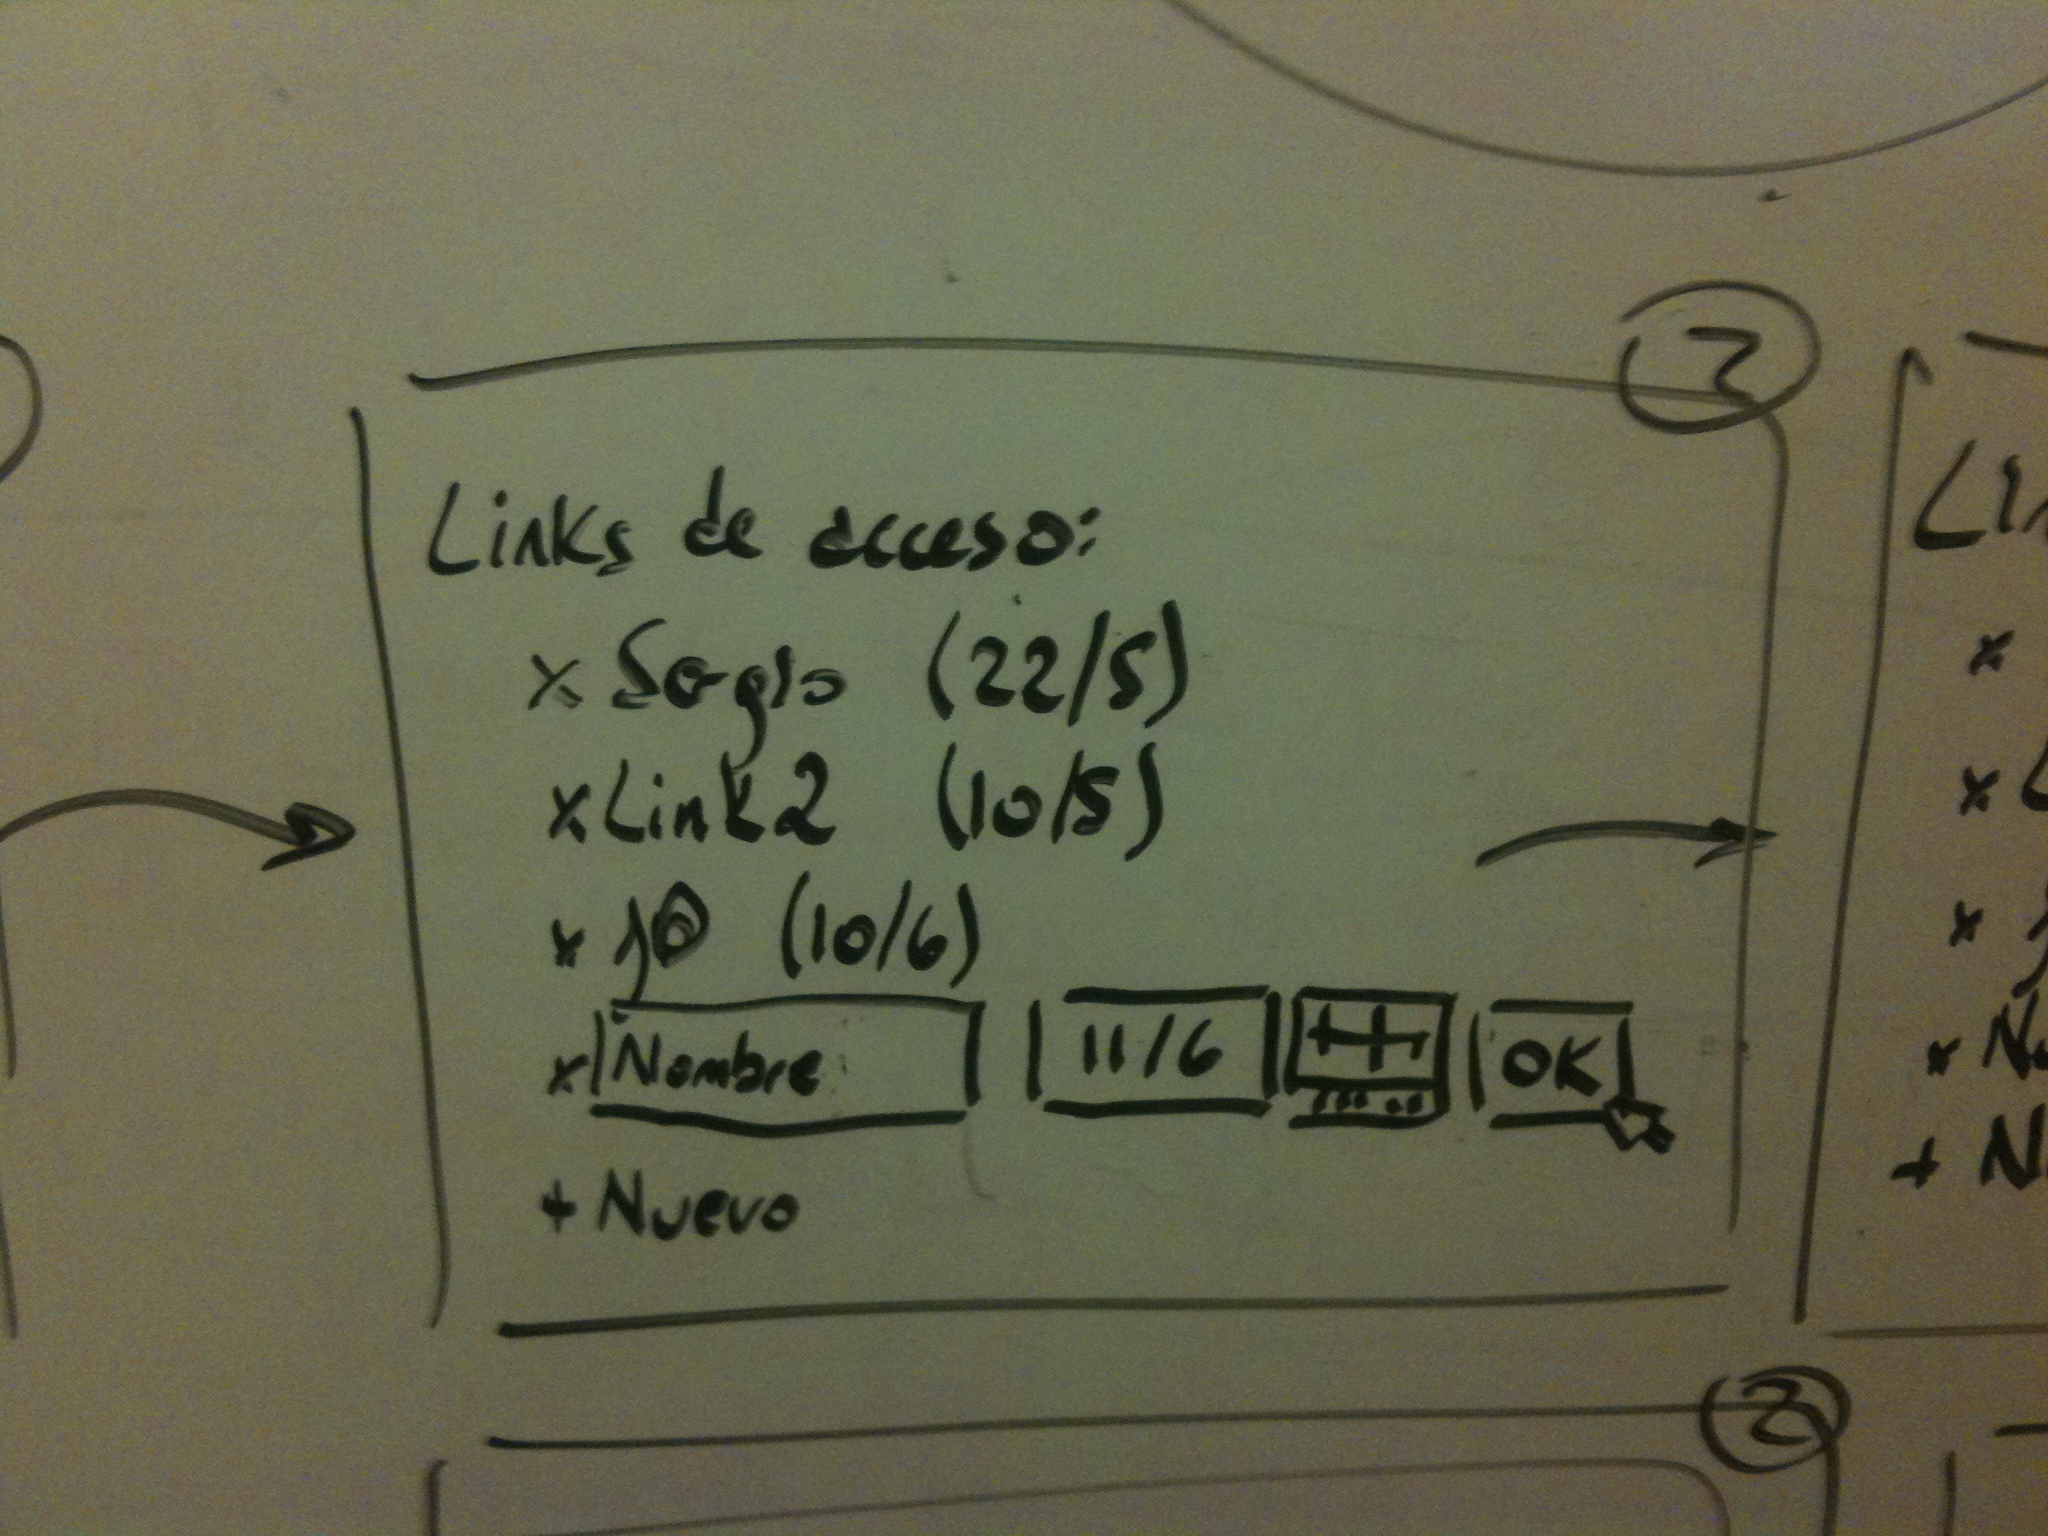 3
Links de acceso:
x Sergio (22/5)
x Link2 (10/5)
x yo (10/6)
x Nombre 11/6 OK
+ Nuevo
2
Lin
x
x L
x y
x Nu
+ N